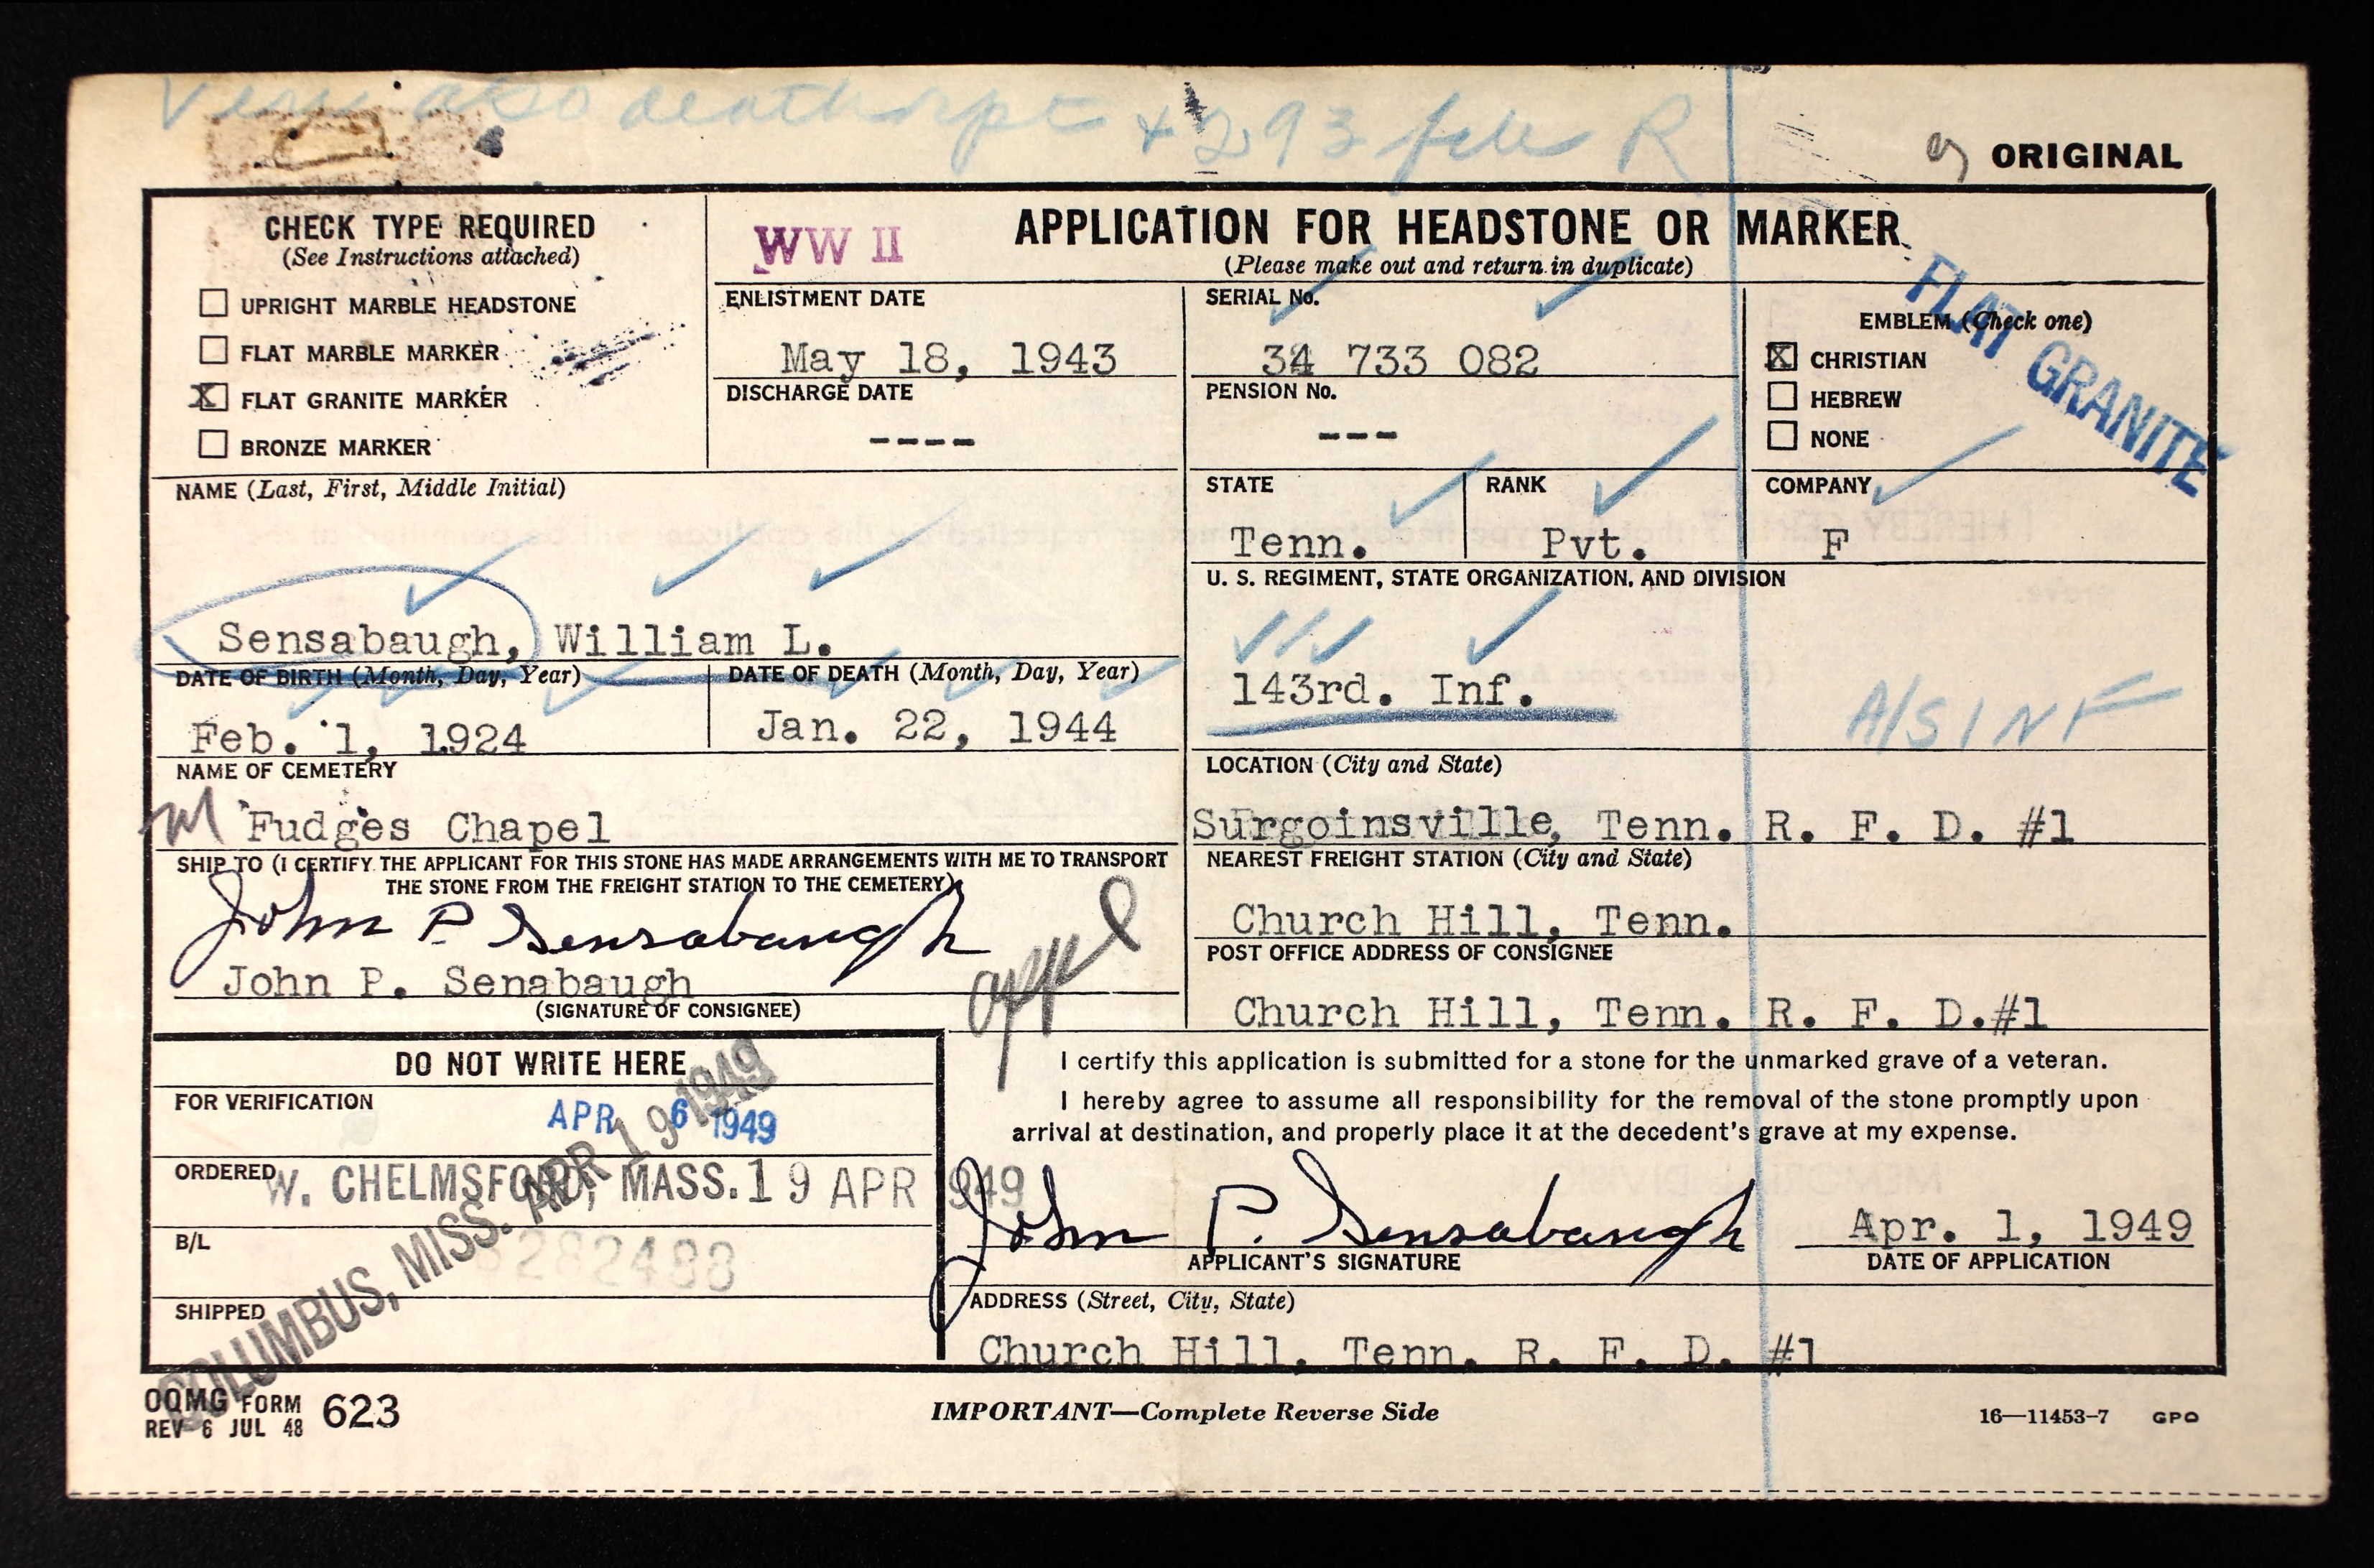 also death rpt + 293 file R
ORIGINAL
CHECK TYPE REQUIRED
(See Instructions attached)
☐ UPRIGHT MARBLE HEADSTONE
☐ FLAT MARBLE MARKER
☒ FLAT GRANITE MARKER
☐ BRONZE MARKER
WW II
APPLICATION FOR HEADSTONE OR MARKER
(Please make out and return in duplicate)
ENLISTMENT DATE
May 18, 1943
DISCHARGE DATE
----
SERIAL No.
34 733 082
PENSION No.
---
EMBLEM (Check one)
☒ CHRISTIAN
☐ HEBREW
☐ NONE
FLAT GRANITE
NAME (Last, First, Middle Initial)
Sensabaugh, William L.
STATE
Tenn.
RANK
Pvt.
COMPANY
F
U. S. REGIMENT, STATE ORGANIZATION, AND DIVISION
143rd. Inf.
A/S INF
DATE OF BIRTH (Month, Day, Year)
Feb. 1, 1924
DATE OF DEATH (Month, Day, Year)
Jan. 22, 1944
NAME OF CEMETERY
M Fudges Chapel
LOCATION (City and State)
Surgoinsville, Tenn. R. F. D. #1
SHIP TO (I CERTIFY THE APPLICANT FOR THIS STONE HAS MADE ARRANGEMENTS WITH ME TO TRANSPORT
THE STONE FROM THE FREIGHT STATION TO THE CEMETERY)
John P Sensabaugh
John P. Senabaugh
(SIGNATURE OF CONSIGNEE)
appl
NEAREST FREIGHT STATION (City and State)
Church Hill, Tenn.
POST OFFICE ADDRESS OF CONSIGNEE
Church Hill, Tenn. R. F. D.#1
DO NOT WRITE HERE
FOR VERIFICATION
APR 6 1949
ORDERED
W. CHELMSFORD, MASS. 19 APR 1949
B/L
8282488
SHIPPED
COLUMBUS, MISS. APR 19 1949
I certify this application is submitted for a stone for the unmarked grave of a veteran.
I hereby agree to assume all responsibility for the removal of the stone promptly upon
arrival at destination, and properly place it at the decedent's grave at my expense.
John P. Sensabaugh
APPLICANT'S SIGNATURE
Apr. 1, 1949
DATE OF APPLICATION
ADDRESS (Street, City, State)
Church Hill, Tenn. R. F. D. #1
OQMG FORM 623
REV 6 JUL 48
IMPORTANT—Complete Reverse Side
16—11453-7 GPO